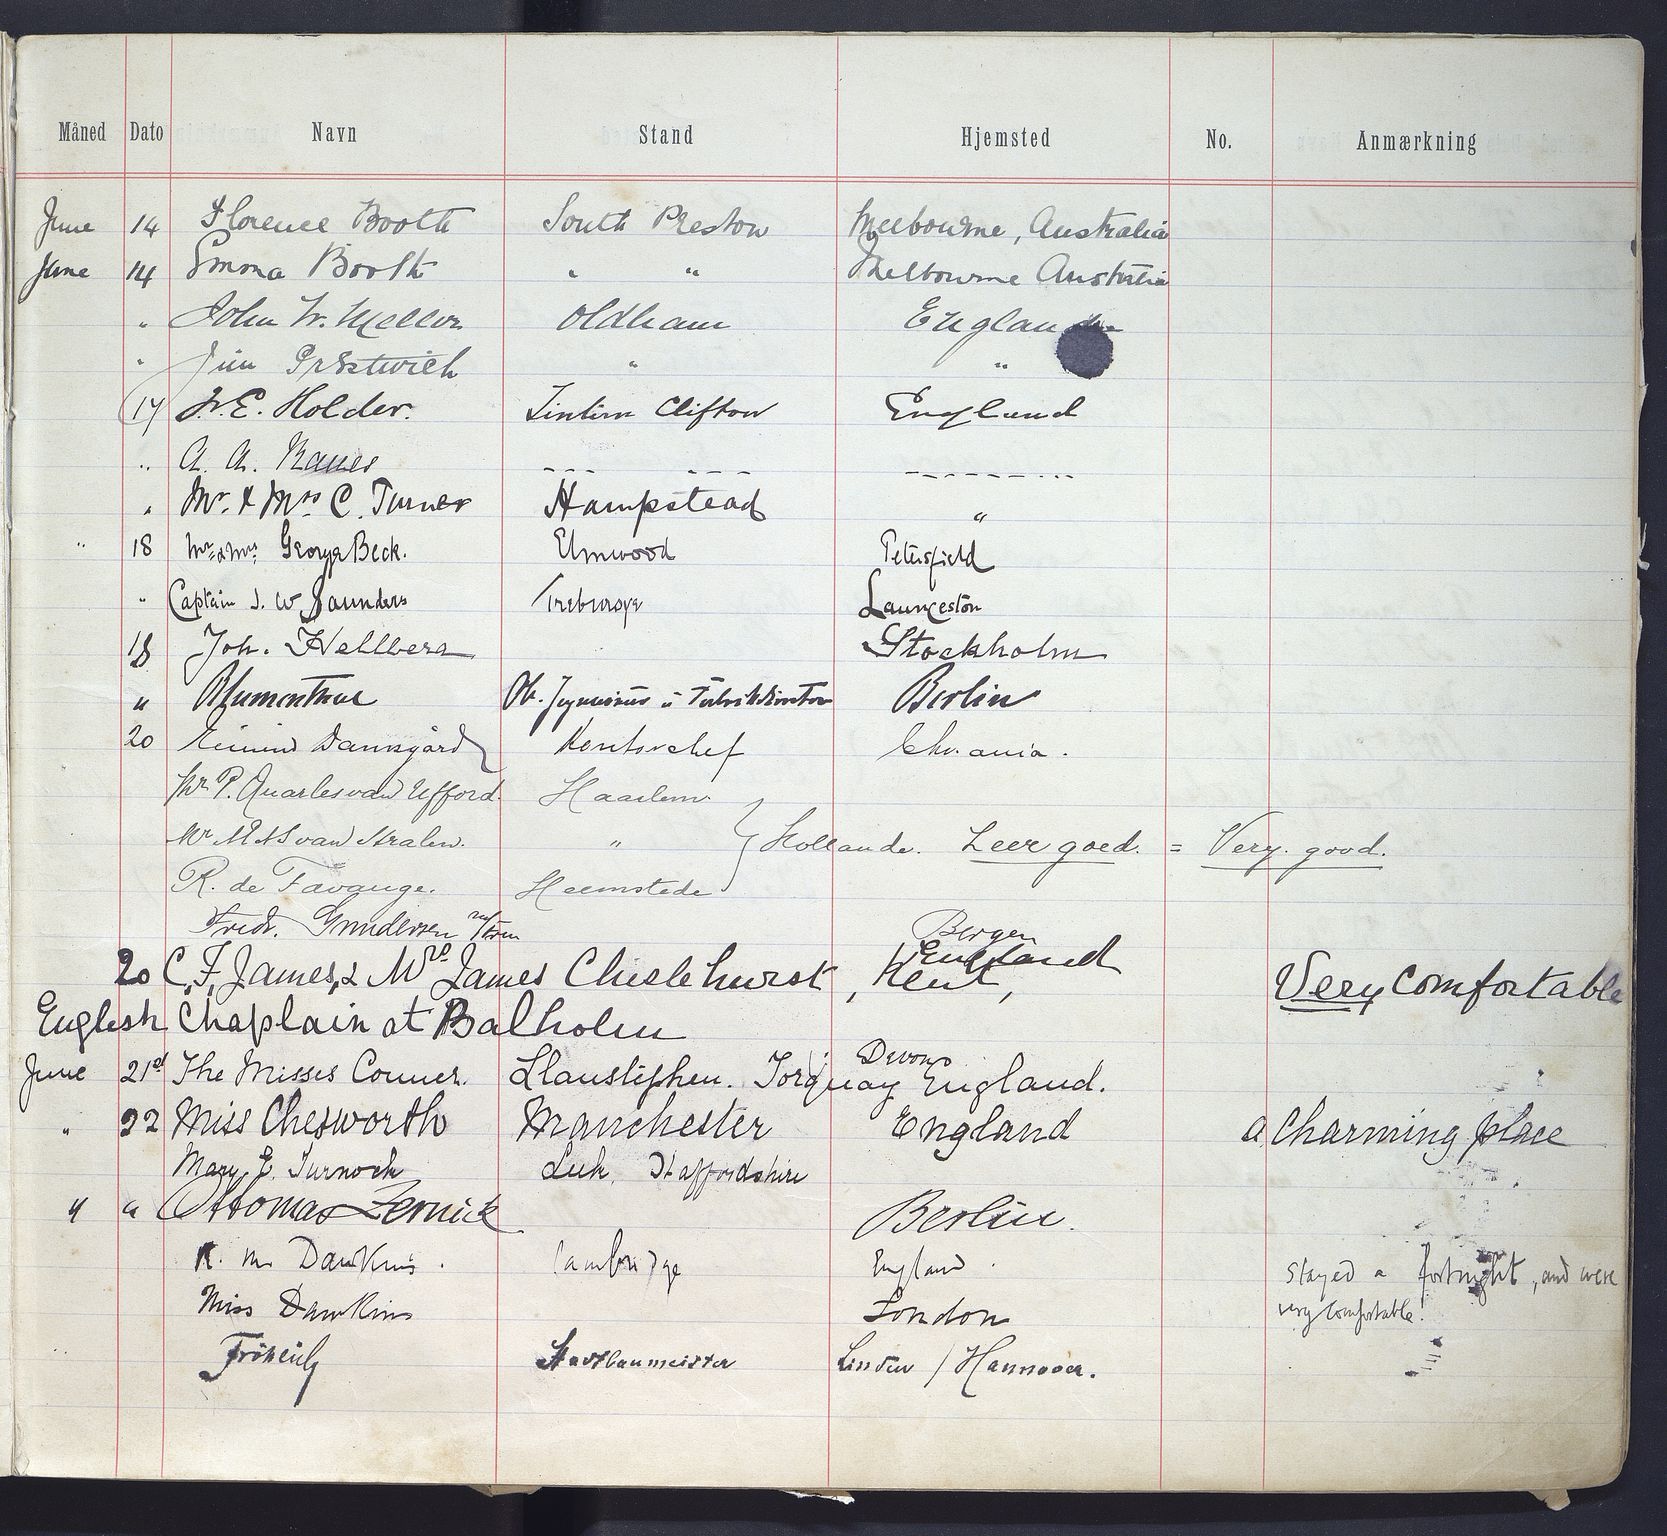 Måned Dato Navn Stand Hjemsted No. Anmærkning
June 14 Florence Booth South Preston Melbourne, Australia
June 14 Emma Booth " " Melbourne Australia
" John W. Mellor Oldham England
" Jim Prestwich " "
17 Holder. Clifton England
" A. A.
" Mr. & Mrs C. Turner Hampstead "
" 18 Mr. & Mrs. George Beck. Elmwood Petersfield
" Captain J. W. Saunders Launceston
18 Joh. Hellberg Stockholm
" Blumenthal Berlin
20 Damsgård Kontorchef Chr.ania.
Mr P. Quarles van Ufford. Haarlem.
Mr van Stralen. " Hollande. Zeer goed. = Very good.
R. de Favauge. Heemstede
Fredr. Gundersen m/ Bergen
20 C. F. James, & Mrs James Chislehurst, Kent, England Very comfortable
English Chaplain at Balholm
June 21st The Misses Conner. Llanstephen. Torquay Devon England.
" 22 Miss Chesworth Manchester England a charming place
Mary E. Turnock Leek, Staffordshire
" " Zernick Berlin.
R. M. Dawkins. Cambridge England. Stayed a fortnight, and were
Miss Dawkins London very comfortable!
Stadtbaumeister Linden / Hannover.